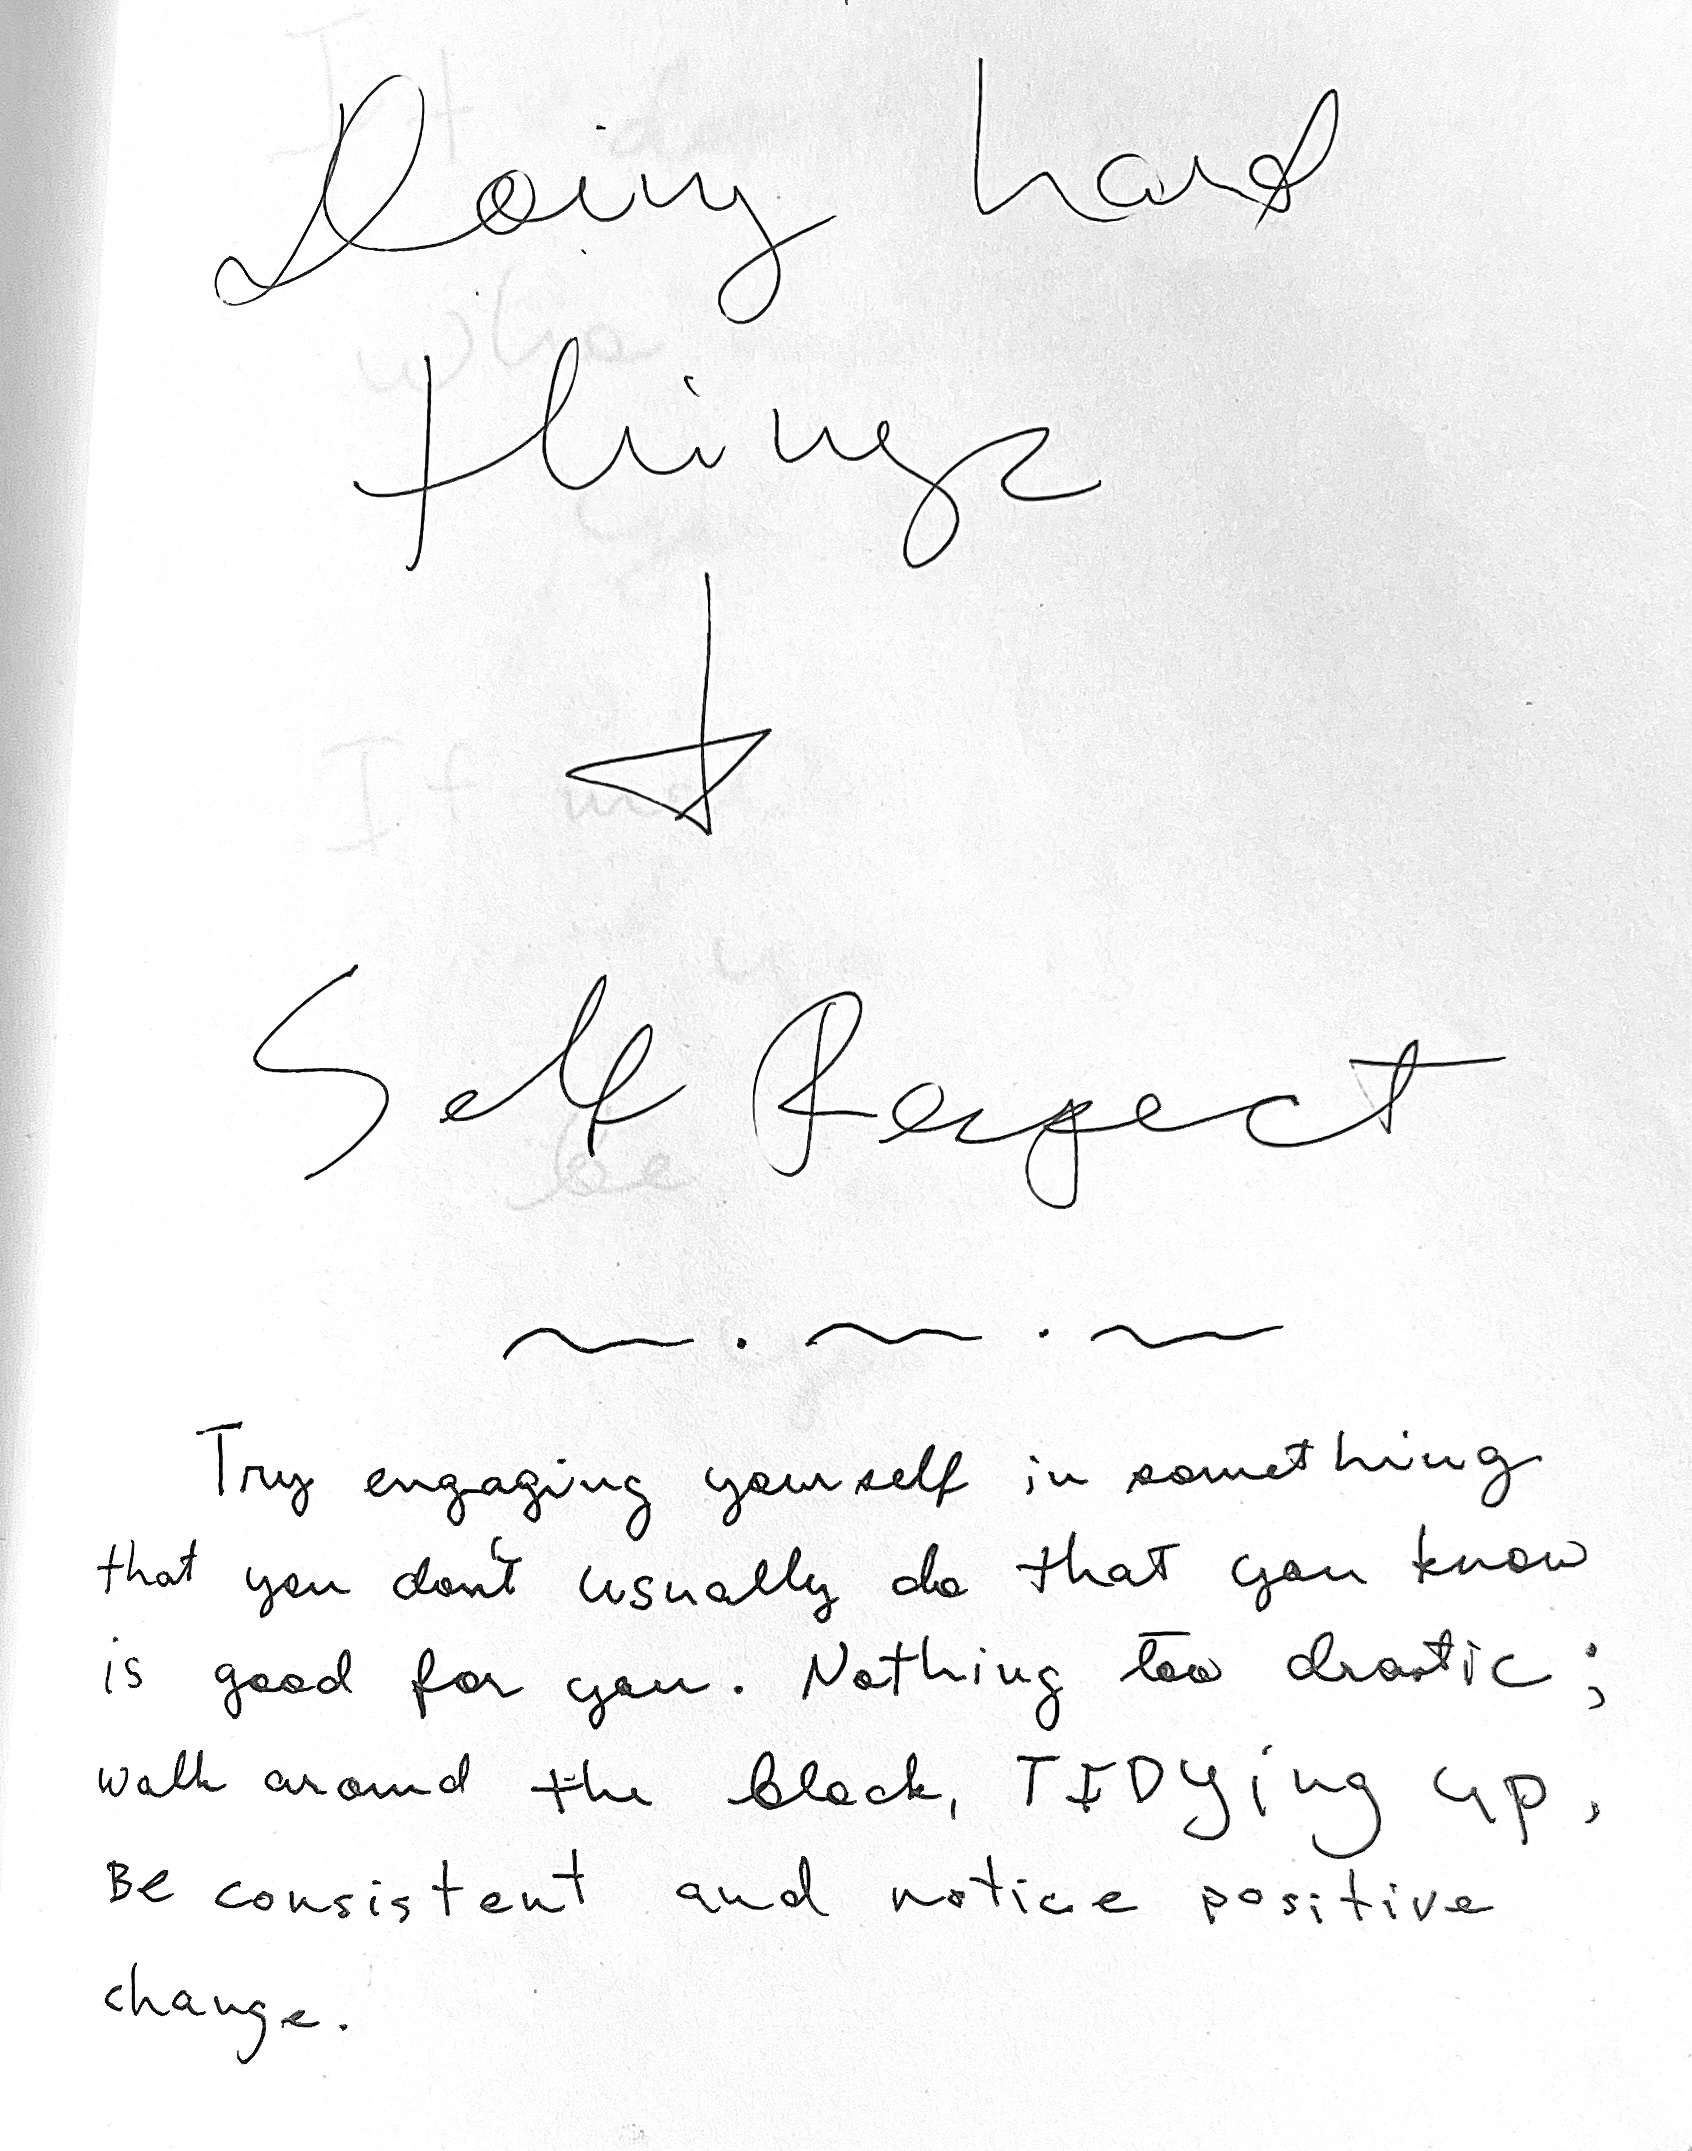 Doing hard
things
Self Respect
Try engaging yourself in something
that you don't usually do that you know
is good for you. Nothing too drastic;
walk around the block, TIDYing up,
Be consistent and notice positive
change.